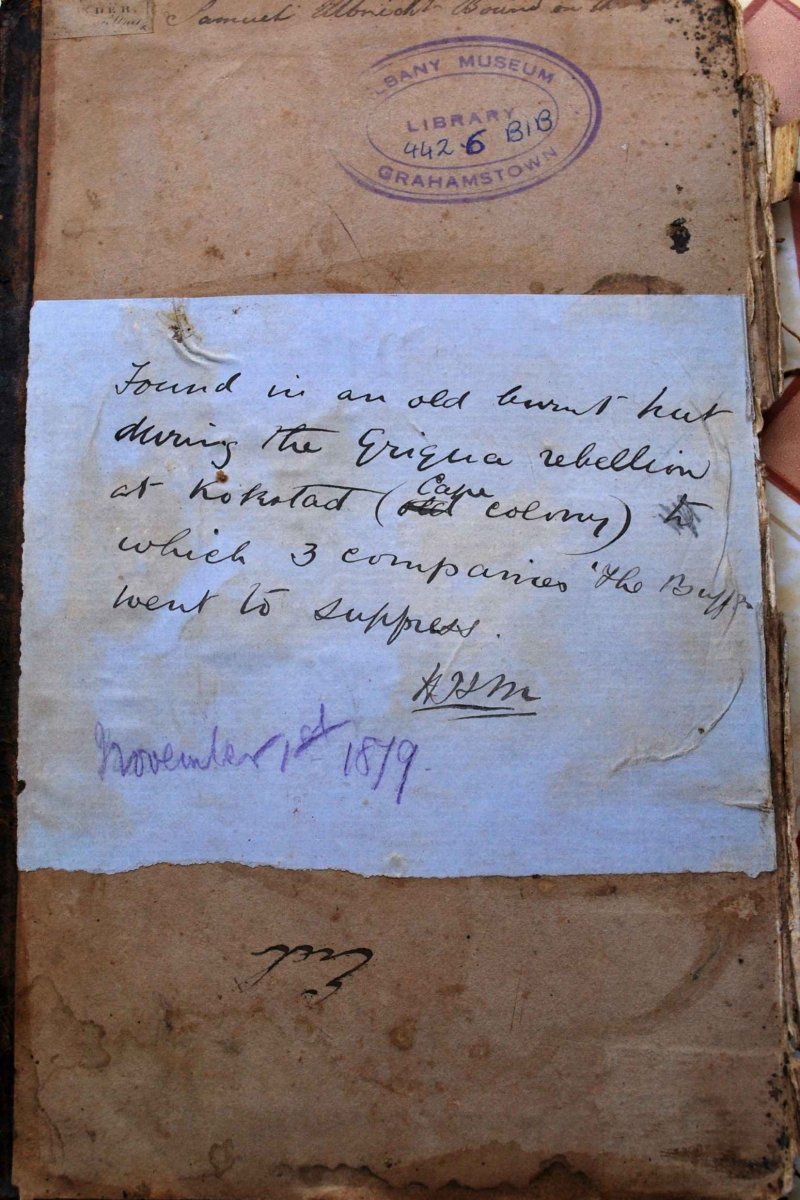 DER.
Samuel Albrecht Bound on the
ALBANY MUSEUM
LIBRARY
4426 BIB
GRAHAMSTOWN
Found in an old burnt hut
during the Griqua rebellion
at Kokstad (Cape colony) to
which 3 companies 'The Buffs
went to suppress.
November 1st 1879.